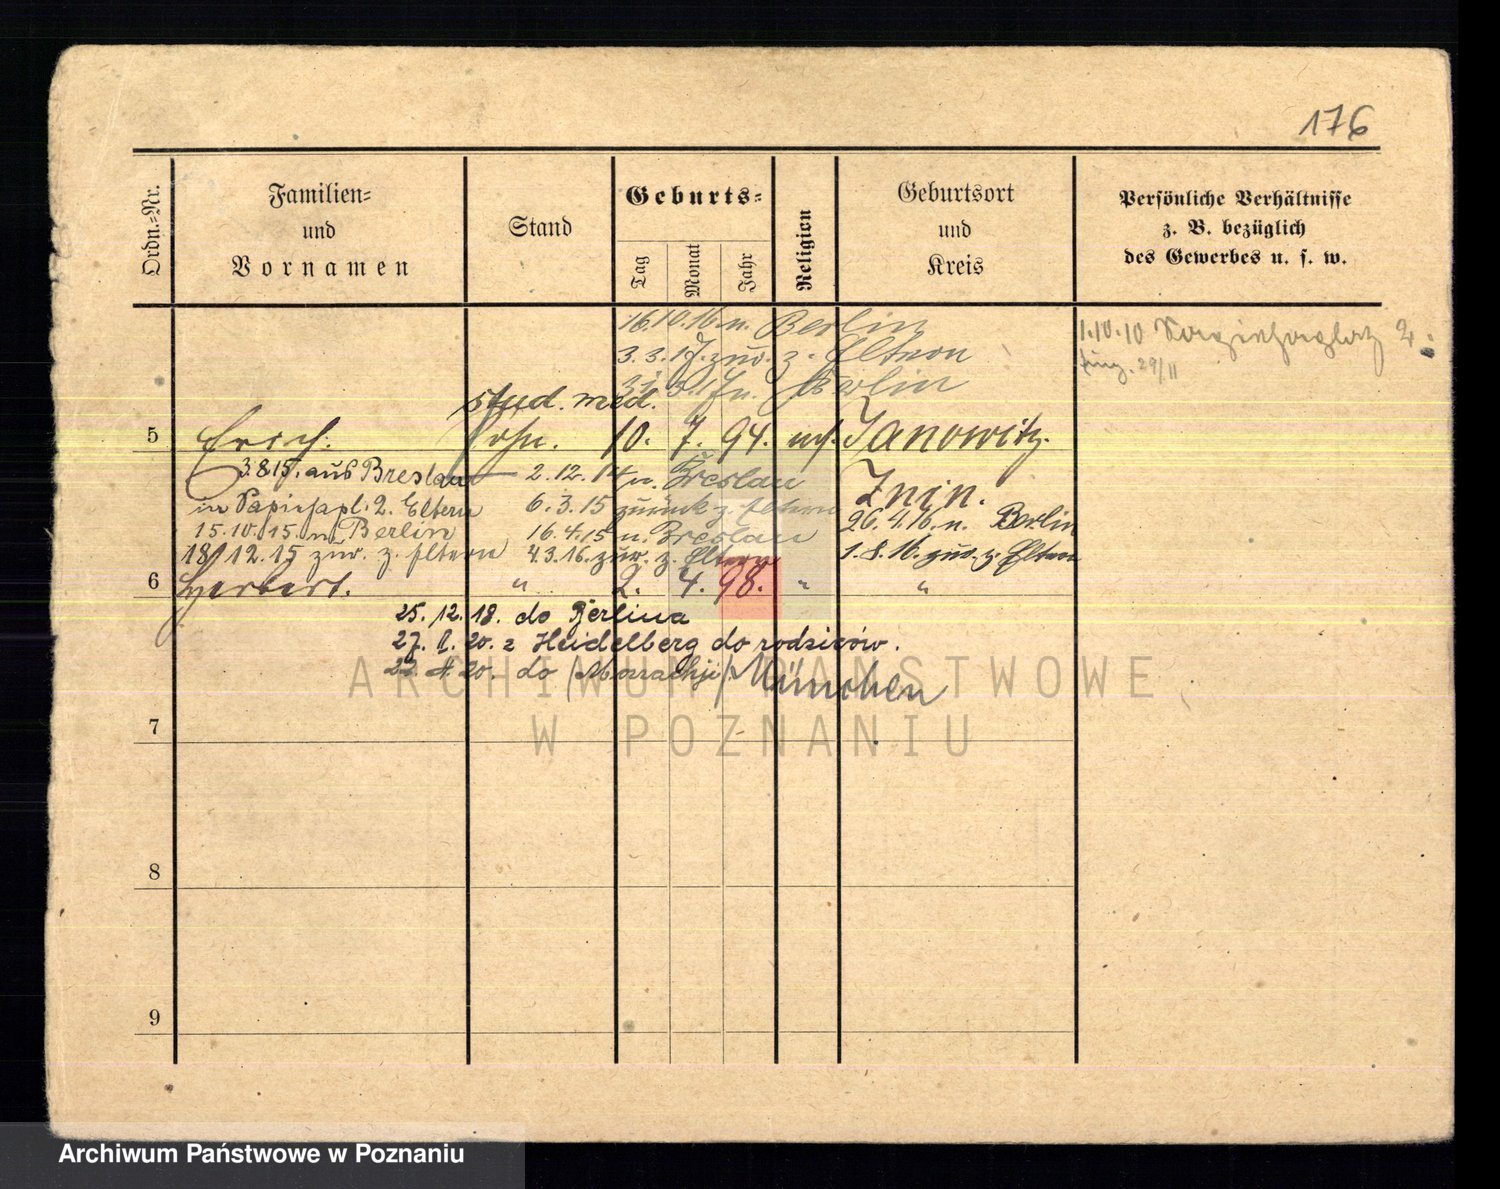 176
Ordn.=Nr.
Familien=
und
Vornamen
Stand
Geburts=
Tag
Monat
Jahr
Religion
Geburtsort
und
Kreis
Persönliche Verhältnisse
z. B. bezüglich
des Gewerbes u. s. w.
16.10.16. n. Berlin
3.3.17. zur. z. Eltern
31. 5. 17 n. Berlin
1.10.10
29/11
stud. med.
5 Erich. Sohn. 10. 7. 94. mos. Janowitz.
Znin.
3.8.15. aus Breslau
2. Eltern
15.10.15. n. Berlin
18/12.15 zur. z. Eltern
2.12.14 n. Breslau
6.3.15 zurück z. Eltern
16.4.15 n. Breslau
4.3.16. zur. z. Eltern
26.4.16. n. Berlin
1.8.16. zur. z. Eltern
6 Herbert. " 2. 4. 98. " "
25. 12. 18. do Berlina
27. 20. z Heidelberg do rodziców.
20. do (Monachji) München
7
8
9
ARCHIWUM PAŃSTWOWE
W POZNANIU
Archiwum Państwowe w Poznaniu